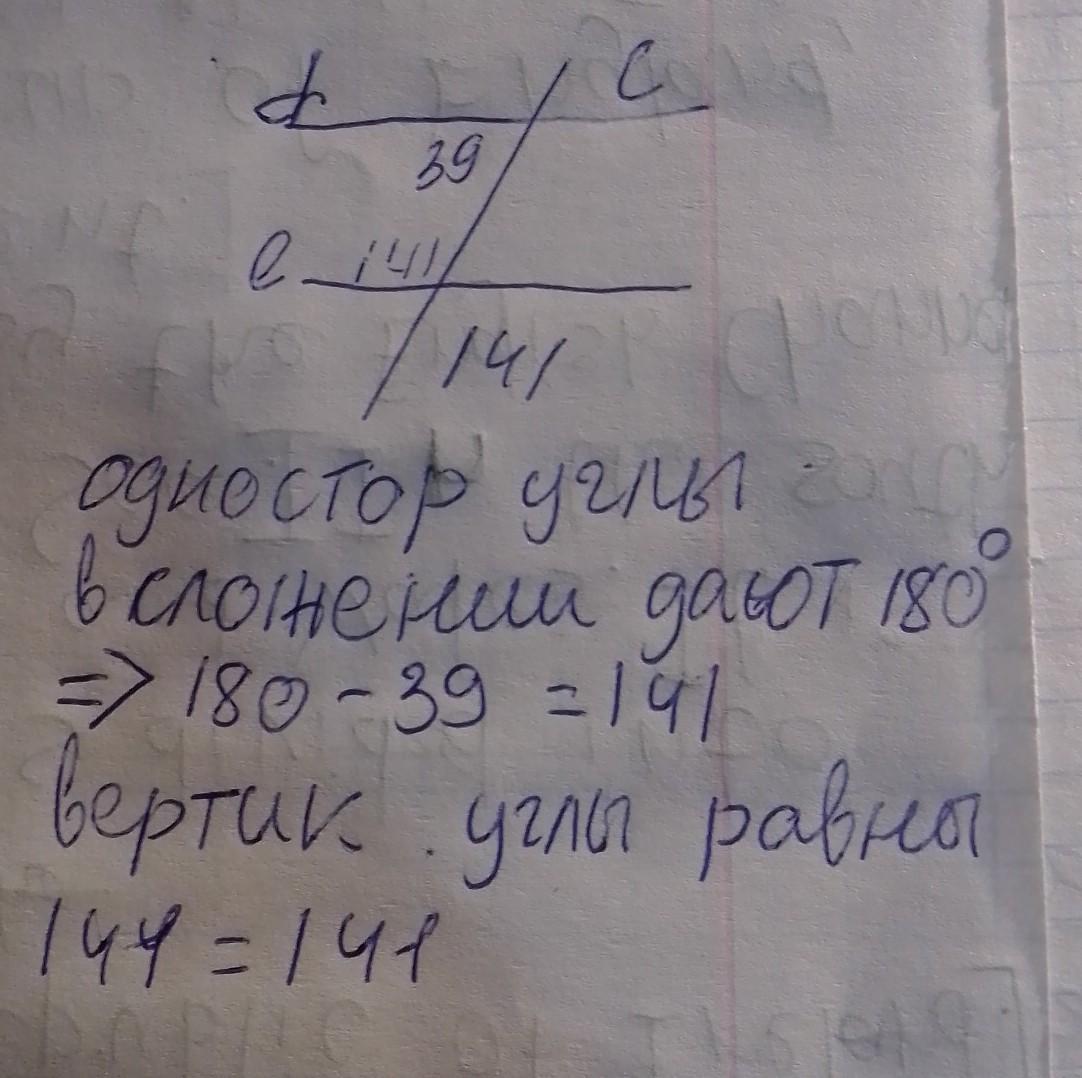 d c
39
e 141
141
одностор углы
в сложении дают 180°
=> 180 - 39 = 141
вертик. углы равны
141 = 141